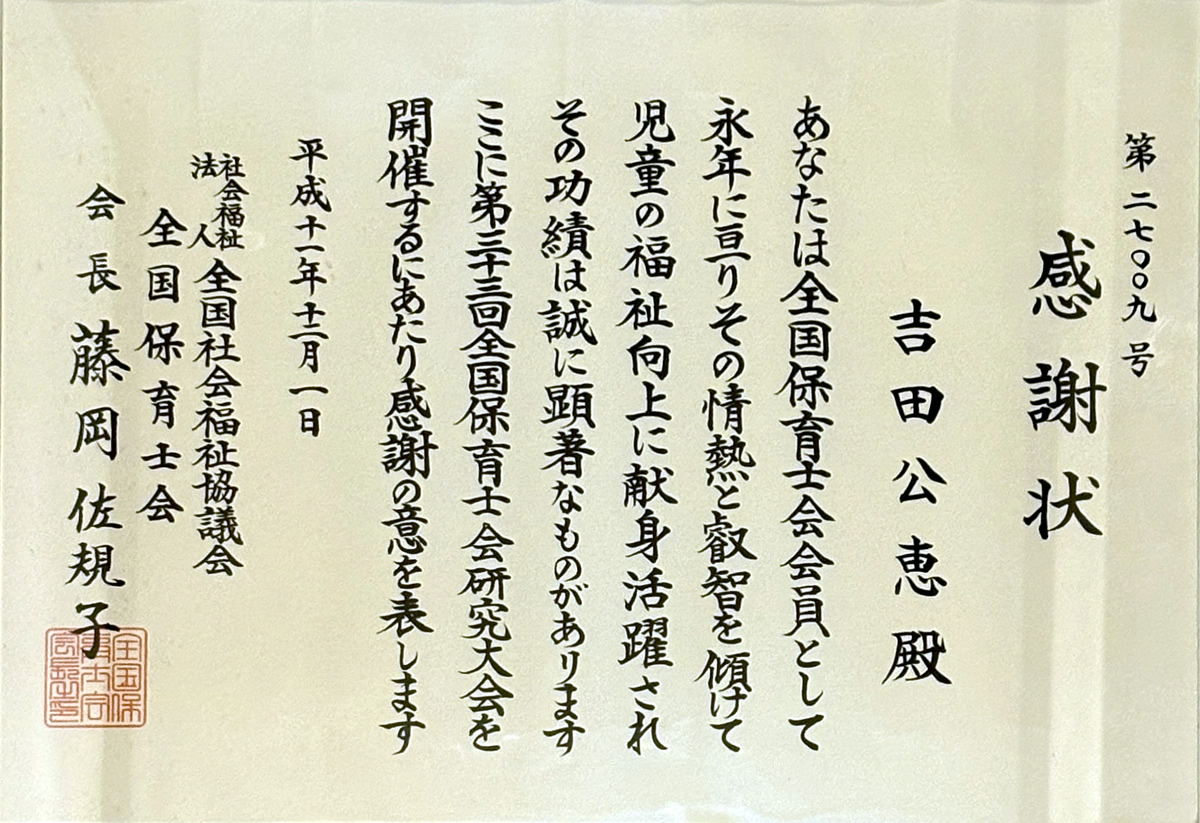 第二七〇〇九号
感謝状
吉田公恵殿
あなたは全国保育士会会員として
永年に亘りその情熱と叡智を傾けて
児童の福祉向上に献身活躍され
その功績は誠に顕著なものがあります
ここに第三十三回全国保育士会研究大会を
開催するにあたり感謝の意を表します
平成十一年十二月一日
社会福祉法人全国社会福祉協議会
全国保育士会
会長藤岡佐規子
全国保
育士会
会長之印